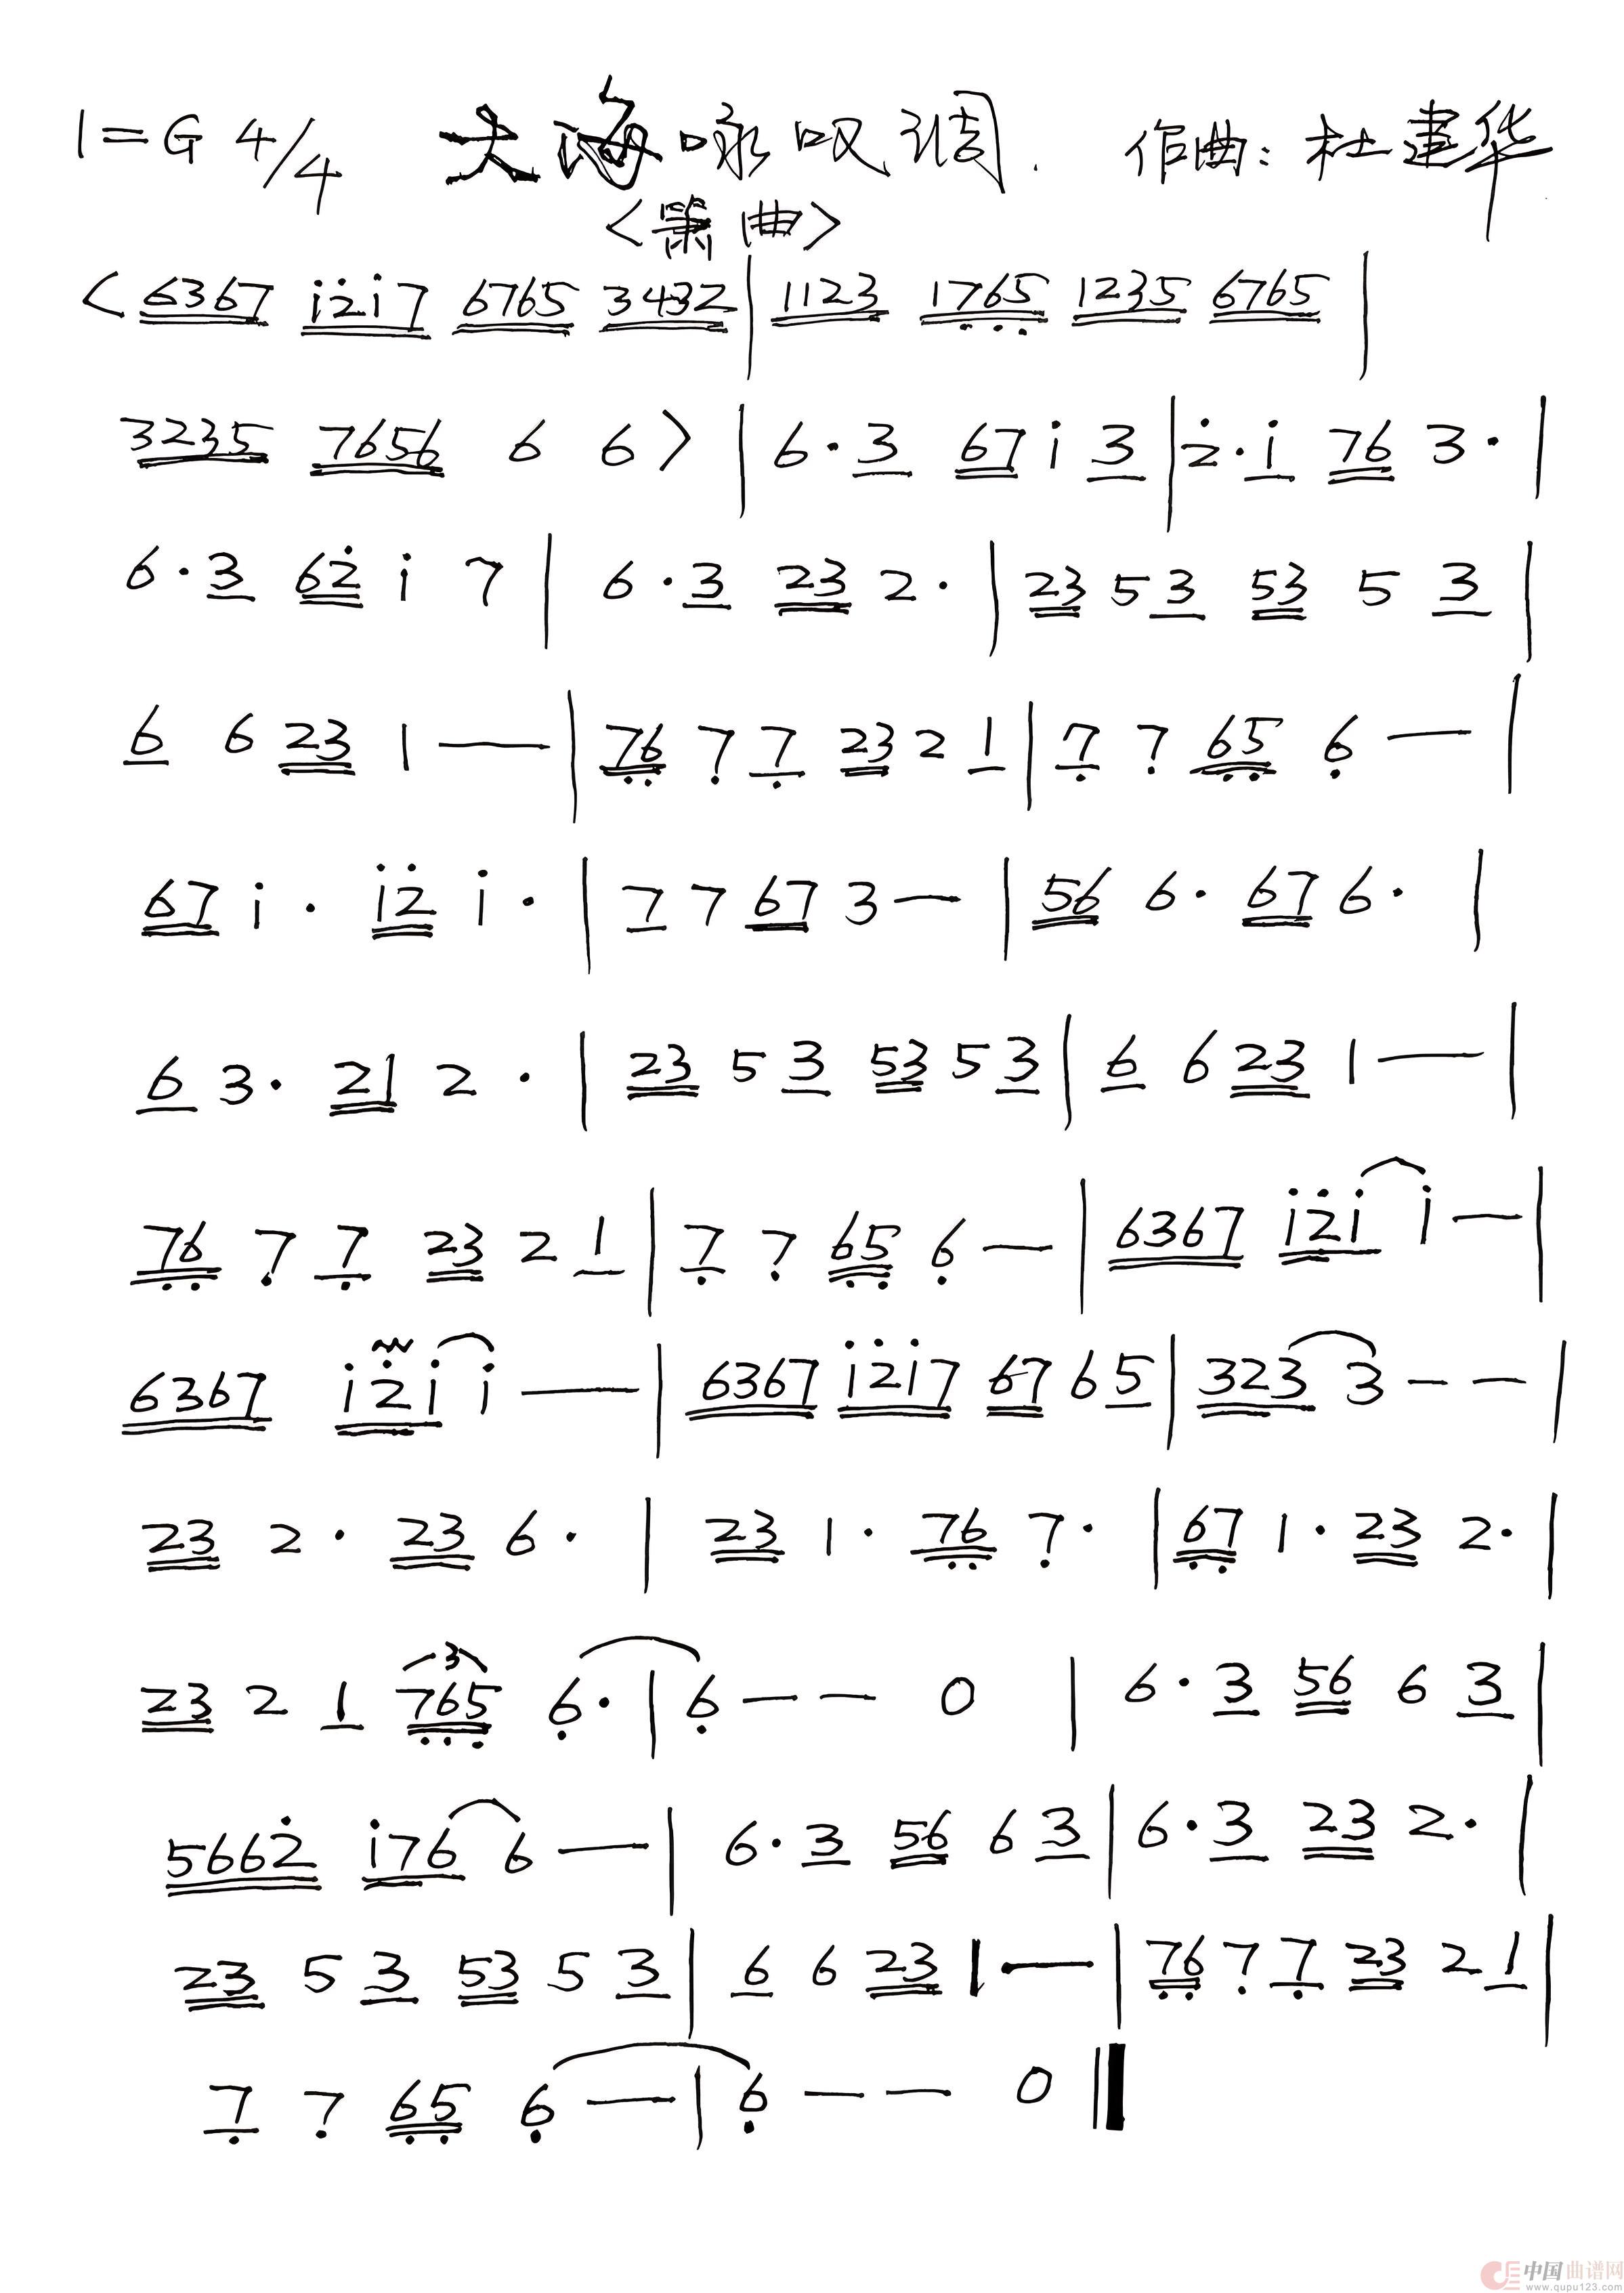 1=G 4/4 大海咏叹调. 作曲:杜建华
<箫曲>
< 6367 i̇2̇i̇7 6765 3432 | 1123 17̣6̣5̣ 1235 6765 |
3235 7656 6 6 > | 6·3 67 i̇ 3 | 2̇·i̇ 76 3· |
6·3 62̇ i̇ 7 | 6·3 23 2· | 23 5 3 53 5 3 |
6 6 23 1 — | 7̣6̣ 7̣ 7̣ 23 2 1 | 7̣ 7̣ 6̣5̣ 6̣ — |
67 i̇· i̇2̇ i̇· | 7 7 67 3 — | 56 6· 67 6· |
6 3· 21 2· | 23 5 3 53 5 3 | 6 6 23 1 — |
7̣6̣ 7̣ 7̣ 23 2 1 | 7̣ 7̣ 6̣5̣ 6̣ — | 6367 i̇2̇i̇ i̇ — |
6367 i̇2̇i̇ i̇ — | 6367 i̇2̇i̇7 67 6 5 | 323 3 — — |
23 2· 23 6· | 23 1· 7̣6̣ 7̣· | 6̣7̣ 1· 23 2· |
3
23 2 1 7̣6̣5̣ 6̣· | 6̣ — — 0 | 6·3 56 6 3 |
5662̇ i̇76 6 — | 6·3 56 6 3 | 6·3 23 2· |
23 5 3 53 5 3 | 6 6 23 1 — | 7̣6̣ 7̣ 7̣ 23 2 1 |
7̣ 7̣ 6̣5̣ 6̣ — | 6̣ — — 0 ‖
中国曲谱网
www.qupu123.com